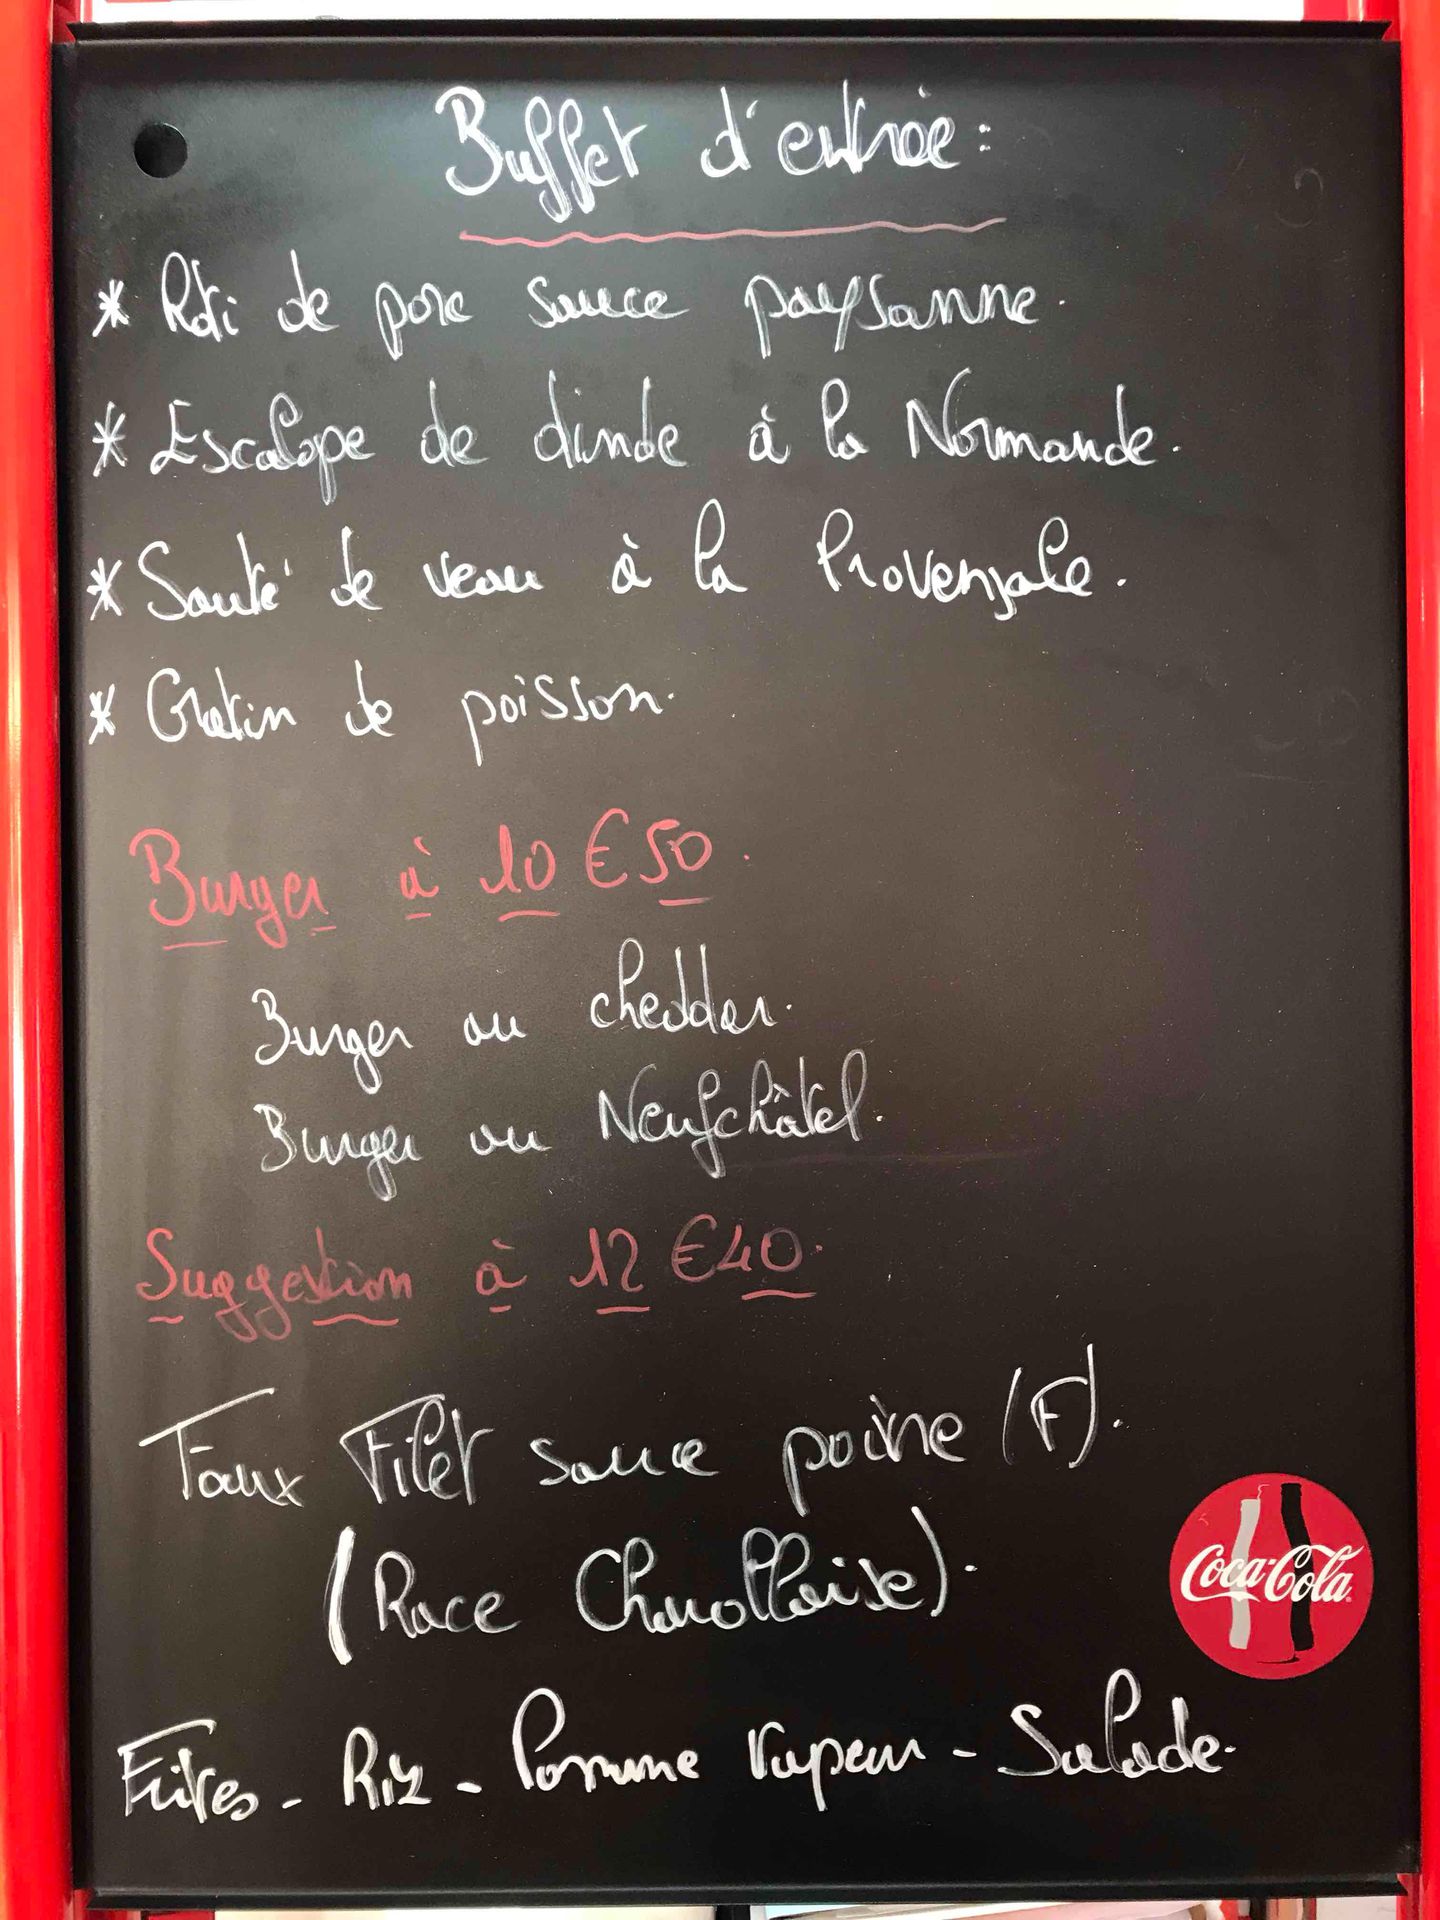 Buffet d'entrée :
* Roti de porc sauce paysanne.
* Escalope de dinde à la Normande.
* Sauté de veau à la Provençale.
* Gratin de poisson.
Burger à 10 € 50.
Burger au cheddar.
Burger au Neufchâtel.
Suggestion à 12 € 40.
Faux Filet sauce poivre (F).
(Race Charollaise).
Coca-Cola
Frites - Riz - Pomme vapeur - Salade.